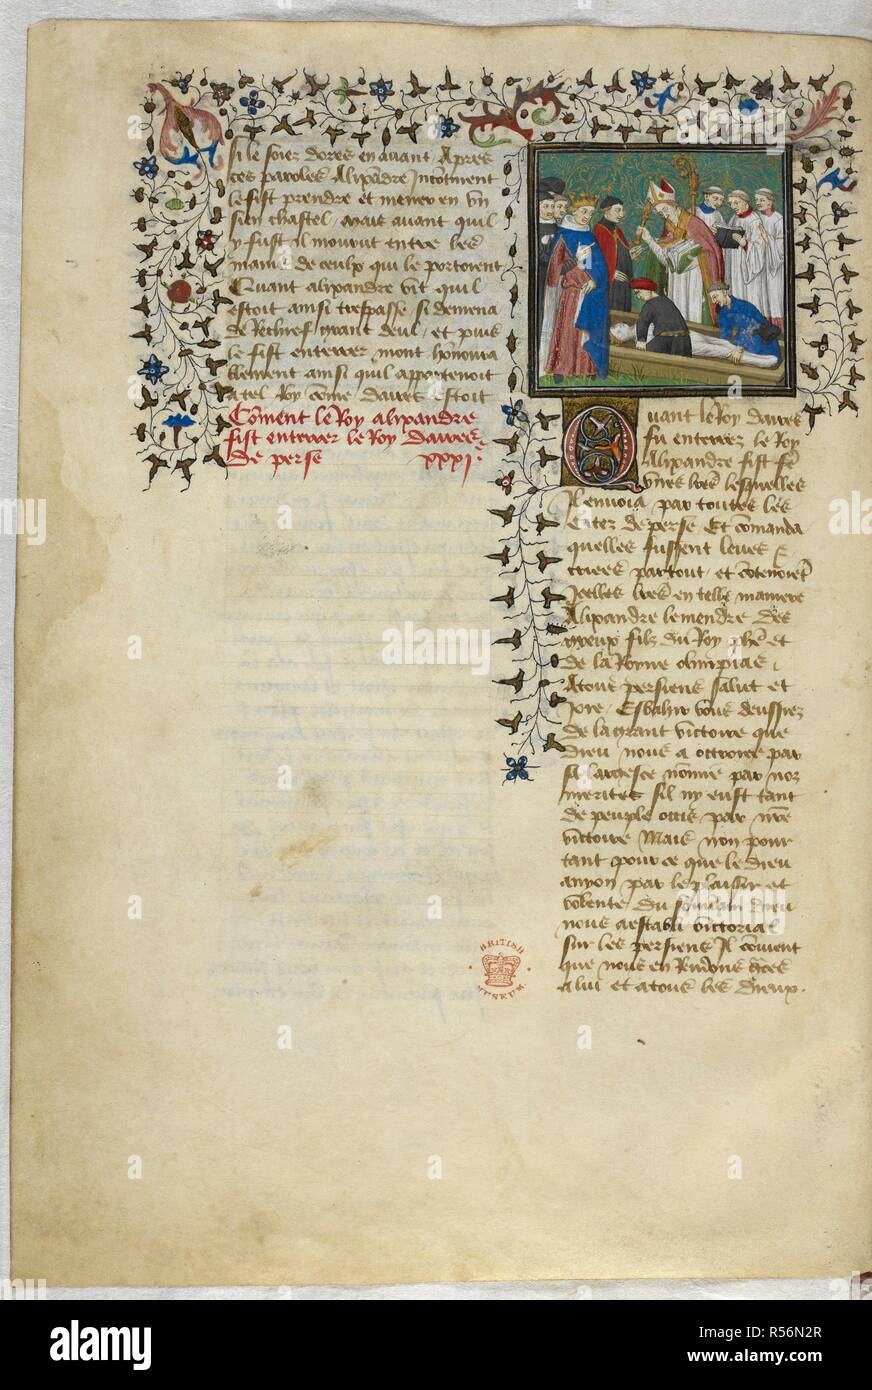 si le soiez dores en avant Apres
ces paroles Alixandre Incontinent
le fist prendre et mener en un
sien chastel, mais avant quil
y fust il mourut entre les
mains de ceulx qui le portoient
Quant alixandre vit quil
estoit ainsi trespasse si demena
de Rechief grant deul, et puis
le fist enterrer mont honnora
blement ainsi quil appartenoit
a tel Roy come daires estoit
Coment le Roy alixandre
fist enterrer le Roy daires
de perse xxxi.
Quant le Roy daires
fu enterrez le Roy
Alixandre fist
unes lres lesquelles
Il envoia par toutes les
citez de perse Et comanda
quelles fussent leues
criees partout, et cotenoiet
Icelles lres en telle maniere
Alixandre le mendre des
filz du Roy phe et
de la Royne olimpias,
A touz persiens salut et
Joie, Esbahir vous deussiez
de la grant victoire que
dieu nous a ottroiee par
sa largesce nonnie par noz
merites sil ny eust tant
de peuple ocis par nre
victoire Mais non pour
tant pour ce que le dieu
anyon par le plaisir et
volente du souverain dieu
nous a establi victorial
sur les persiens Il covient
que nous en Rendons graces
a lui et a tous les dieux.
BRITISH
MUSEUM
alamy
Image ID: R56N2R
www.alamy.com